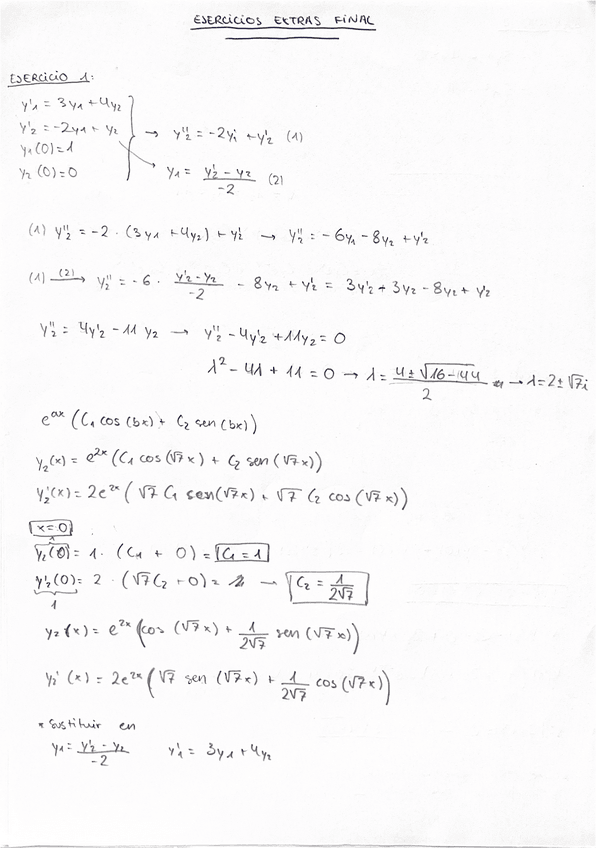 EJERCICIOS EXTRAS FINAL
EJERCICIO 1:
y'1 = 3y1 + 4y2
y'2 = -2y1 + y2 → y''2 = -2y'1 + y'2 (1)
y1(0) = 1
y2(0) = 0
y1 = (y'2 - y2)/-2 (2)
(1) y''2 = -2 · (3y1 + 4y2) + y'2 → y''2 = -6y1 - 8y2 + y'2
(1) (2)→ y''2 = -6 · (y'2 - y2)/-2 - 8y2 + y'2 = 3y'2 + 3y2 - 8y2 + y'2
y''2 = 4y'2 - 11y2 → y''2 - 4y'2 + 11y2 = 0
λ² - 4λ + 11 = 0 → λ = (4 ± √16-44)/2 → λ = 2 ± √7i
e^ax (C1 cos(bx) + C2 sen(bx))
y2(x) = e^2x (C1 cos(√7x) + C2 sen(√7x))
y2'(x) = 2e^2x (√7 C1 sen(√7x) + √7 C2 cos(√7x))
x=0
1
y2(0) = 1 · (C1 + 0) = C1 = 1
y'2(0) = 2 · (√7C2 + 0) = → C2 = 1/2√7
1
y2(x) = e^2x (cos(√7x) + 1/2√7 sen(√7x))
y2'(x) = 2e^2x (√7 sen(√7x) + 1/2√7 cos(√7x))
* Sustituir en
y1 = (y'2 - y2)/-2 y'1 = 3y1 + 4y2